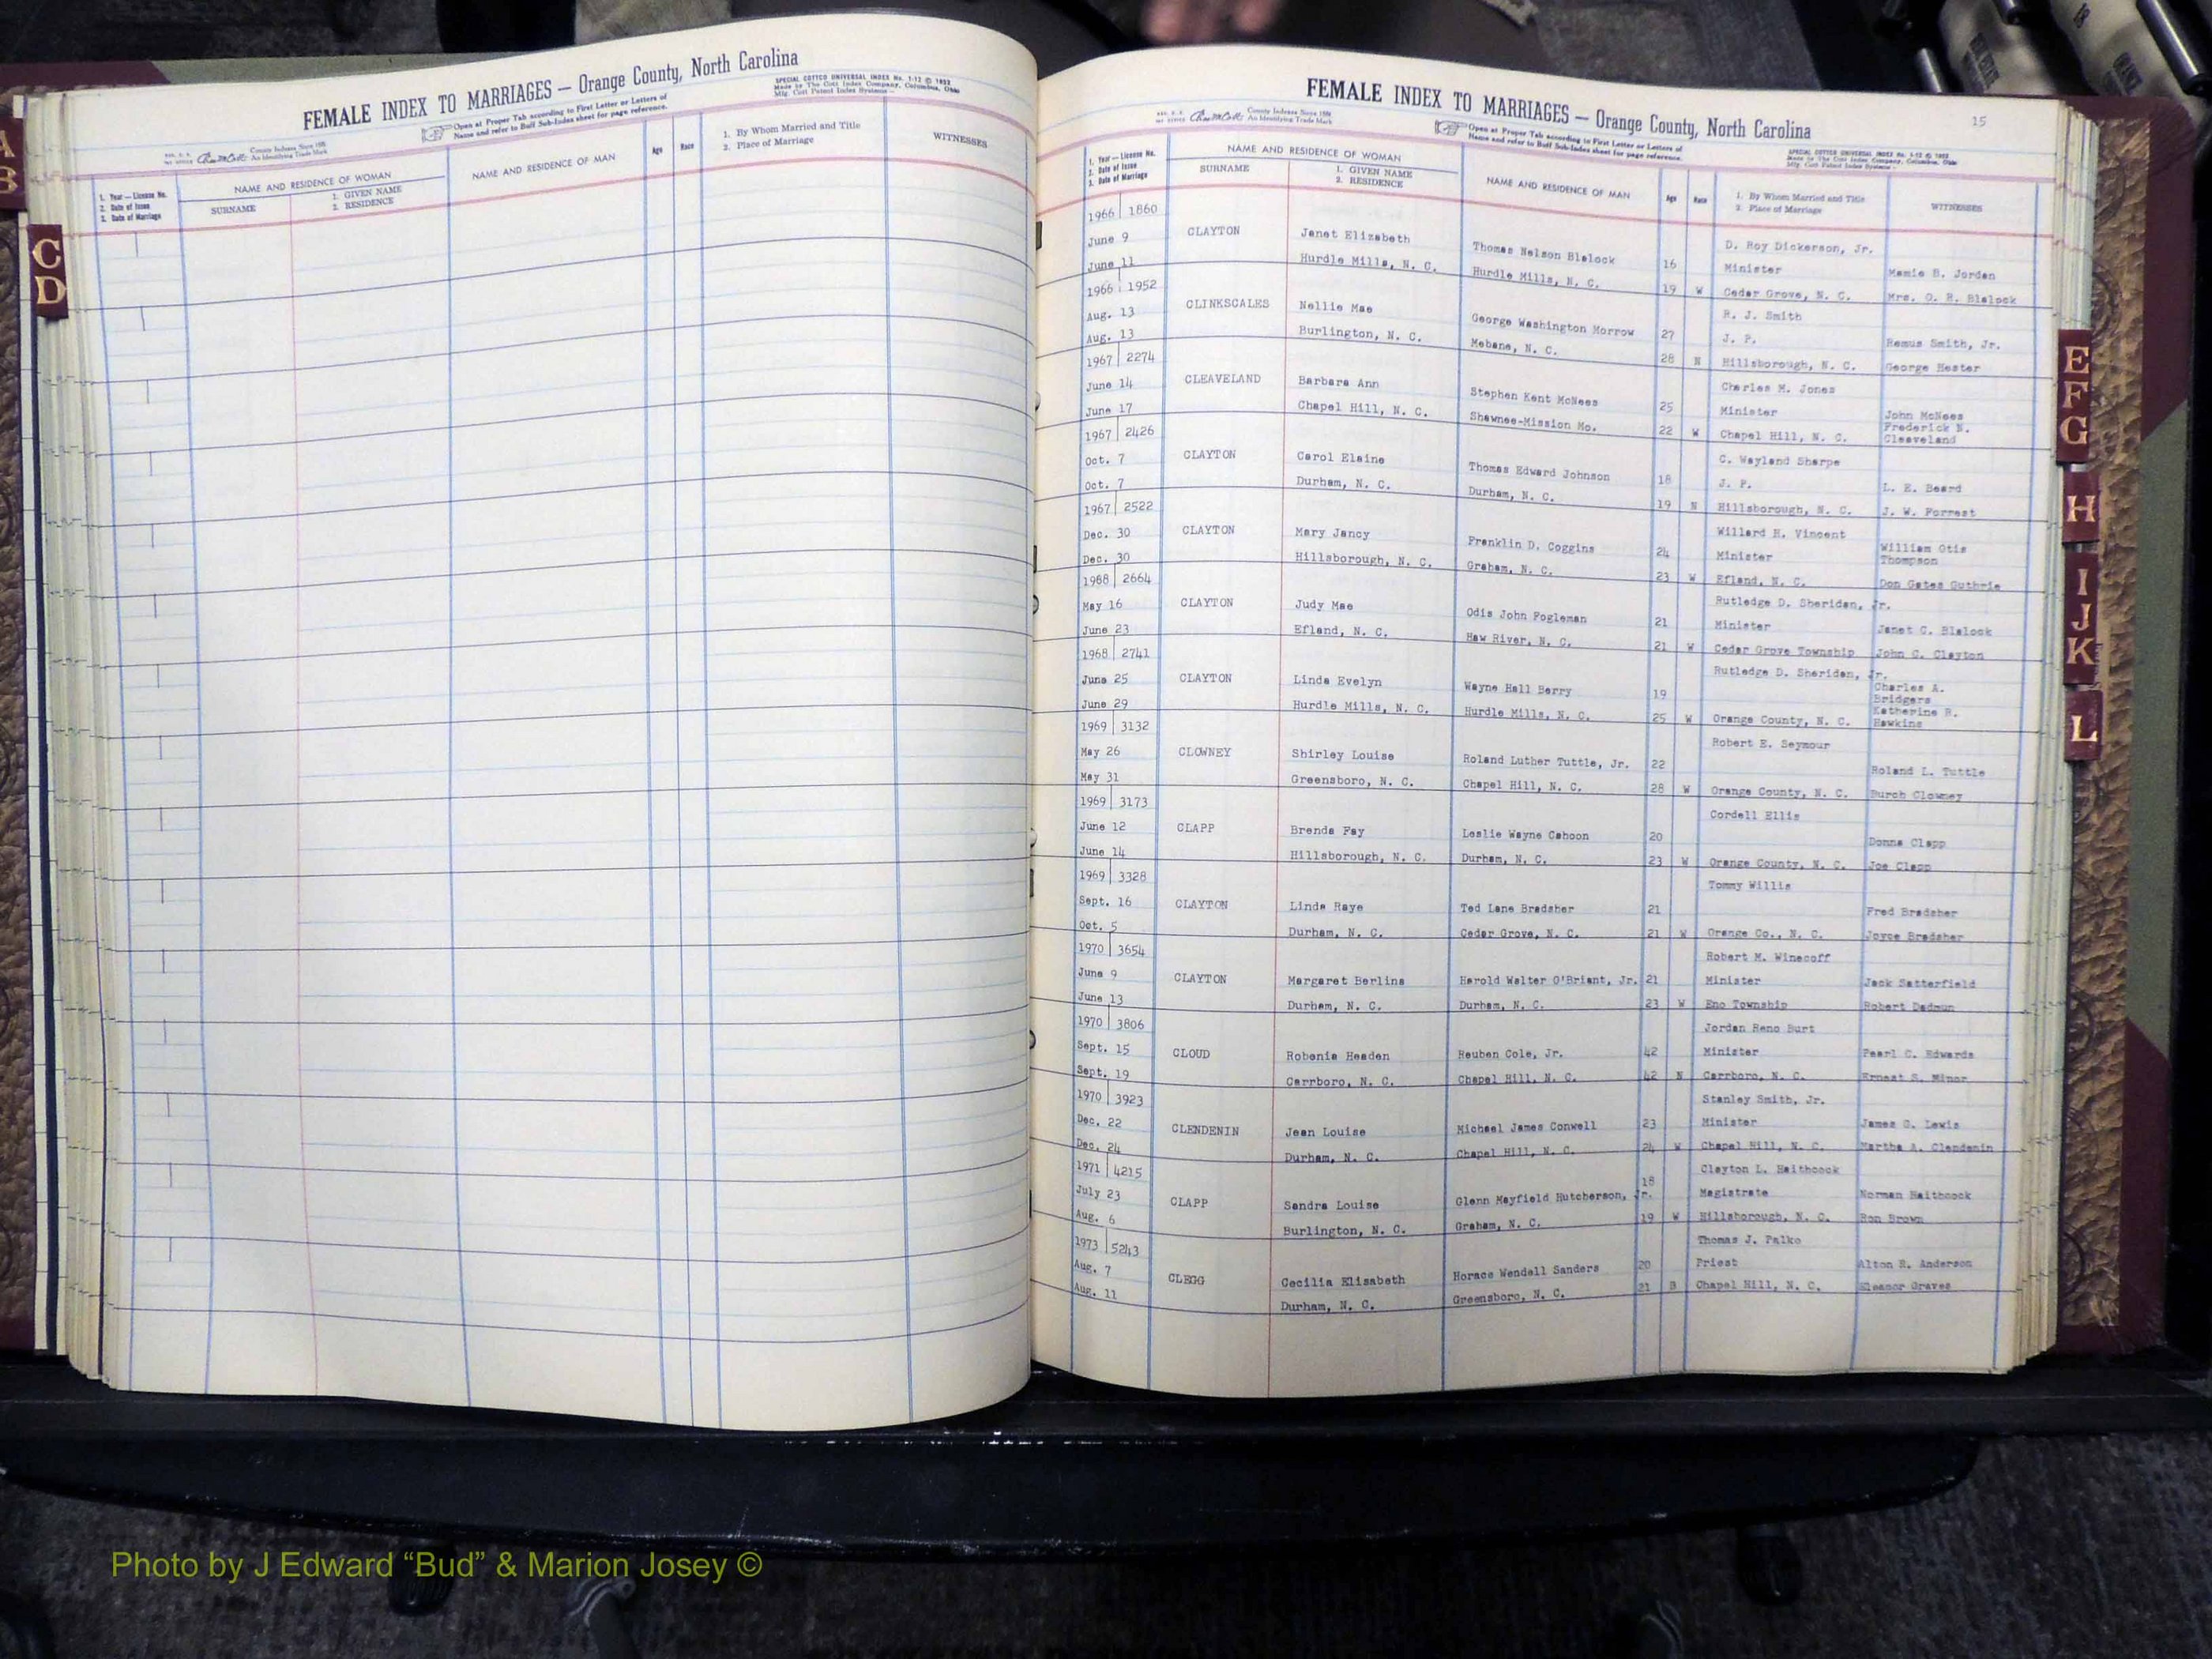 FEMALE INDEX TO MARRIAGES — Orange County, North Carolina
SPECIAL COTTCO UNIVERSAL INDEX No. 1-12 © 1953
Made by The Cott Index Company, Columbus, Ohio
Open at Proper Tab according to First Letter or Letters of
Name and refer to Buff Sub-Index sheet for page reference.
County Indexes Since 1888
An Identifying Trade Mark
1. Year — License No.
2. Date of Issue
3. Date of Marriage
NAME AND RESIDENCE OF WOMAN
SURNAME
1. GIVEN NAME
2. RESIDENCE
NAME AND RESIDENCE OF MAN
Age
Race
1. By Whom Married and Title
2. Place of Marriage
WITNESSES
C
D
FEMALE INDEX TO MARRIAGES — Orange County, North Carolina
15
County Indexes Since 1888
An Identifying Trade Mark
Open at Proper Tab according to First Letter or Letters of
Name and refer to Buff Sub-Index sheet for page reference.
SPECIAL COTTCO UNIVERSAL INDEX No. 1-12 © 1953
Made by The Cott Index Company, Columbus, Ohio
1. Year — License No.
2. Date of Issue
3. Date of Marriage
NAME AND RESIDENCE OF WOMAN
SURNAME
1. GIVEN NAME
2. RESIDENCE
NAME AND RESIDENCE OF MAN
Age
Race
1. By Whom Married and Title
2. Place of Marriage
WITNESSES
1966 1860 D. Roy Dickerson, Jr.
June 9 CLAYTON Janet Elizabeth Thomas Nelson Blalock 16 Minister Mamie B. Jordan
June 11 Hurdle Mills, N. C. Hurdle Mills, N. C. 19 W Cedar Grove, N. C. Mrs. O. H. Blalock
1966 1952 R. J. Smith
Aug. 13 CLINKSCALES Nellie Mae George Washington Morrow 27 J. P. Remus Smith, Jr.
Aug. 13 Burlington, N. C. Mebane, N. C. 28 N Hillsborough, N. C. George Hester
1967 2274 Charles M. Jones
June 14 CLEAVELAND Barbara Ann Stephen Kent McNees 25 Minister John McNees
June 17 Chapel Hill, N. C. Shawnee-Mission Mo. 22 W Chapel Hill, N. C. Frederick N. Cleaveland
1967 2426 C. Wayland Sharpe
Oct. 7 CLAYTON Carol Elaine Thomas Edward Johnson 18 J. P. L. E. Beard
Oct. 7 Durham, N. C. Durham, N. C. 19 N Hillsborough, N. C. J. W. Forrest
1967 2522 Willard H. Vincent
Dec. 30 CLAYTON Mary Jancy Franklin D. Coggins 24 Minister William Otis Thompson
Dec. 30 Hillsborough, N. C. Graham, N. C. 23 W Efland, N. C. Don Gates Guthrie
1988 2664 Rutledge D. Sheridan, Jr.
May 16 CLAYTON Judy Mae Odis John Fogleman 21 Minister Janet C. Blalock
June 23 Efland, N. C. Haw River, N. C. 21 W Cedar Grove Township John C. Clayton
1968 2741 Rutledge D. Sheridan, Jr.
June 25 CLAYTON Linda Evelyn Wayne Hall Berry 19 Charles A. Bridgers
June 29 Hurdle Mills, N. C. Hurdle Mills, N. C. 25 W Orange County, N. C. Katherine R. Hawkins
1969 3132 Robert E. Seymour
May 26 CLOWNEY Shirley Louise Roland Luther Tuttle, Jr. 22 Roland L. Tuttle
May 31 Greensboro, N. C. Chapel Hill, N. C. 28 W Orange County, N. C. Burch Clowney
1969 3173 Cordell Ellis
June 12 CLAPP Brenda Fay Leslie Wayne Cahoon 20 Donna Clapp
June 14 Hillsborough, N. C. Durham, N. C. 23 W Orange County, N. C. Joe Clapp
1969 3328 Tommy Willis
Sept. 16 CLAYTON Linda Raye Ted Lane Bradsher 21 Fred Bradsher
Oct. 5 Durham, N. C. Cedar Grove, N. C. 21 W Orange Co., N. C. Joyce Bradsher
1970 3654 Robert M. Winecoff
June 9 CLAYTON Margaret Berlina Harold Walter O'Briant, Jr. 21 Minister Jack Satterfield
June 13 Durham, N. C. Durham, N. C. 23 W Eno Township Robert Dadmun
1970 3806 Jordan Reno Burt
Sept. 15 CLOUD Robenia Headen Reuben Cole, Jr. 42 Minister Pearl C. Edwards
Sept. 19 Carrboro, N. C. Chapel Hill, N. C. 42 N Carrboro, N. C. Ernest S. Minor
1970 3923 Stanley Smith, Jr.
Dec. 22 CLENDENIN Jean Louise Michael James Conwell 23 Minister James G. Lewis
Dec. 24 Durham, N. C. Chapel Hill, N. C. 24 W Chapel Hill, N. C. Martha A. Clendenin
1971 4215 Clayton L. Haithcock
July 23 CLAPP Sandra Louise Glenn Mayfield Hutcherson, Jr. 18 Magistrate Norman Haithcock
Aug. 6 Burlington, N. C. Graham, N. C. 19 W Hillsborough, N. C. Ron Brown
1973 5243 Thomas J. Palko
Aug. 7 CLEGG Cecilia Elisabeth Horace Wendell Sanders 20 Priest Alton R. Anderson
Aug. 11 Durham, N. C. Greensboro, N. C. 21 B Chapel Hill, N. C. Eleanor Graves
E
F
G
H
I
J
K
L
Photo by J Edward “Bud” & Marion Josey ©